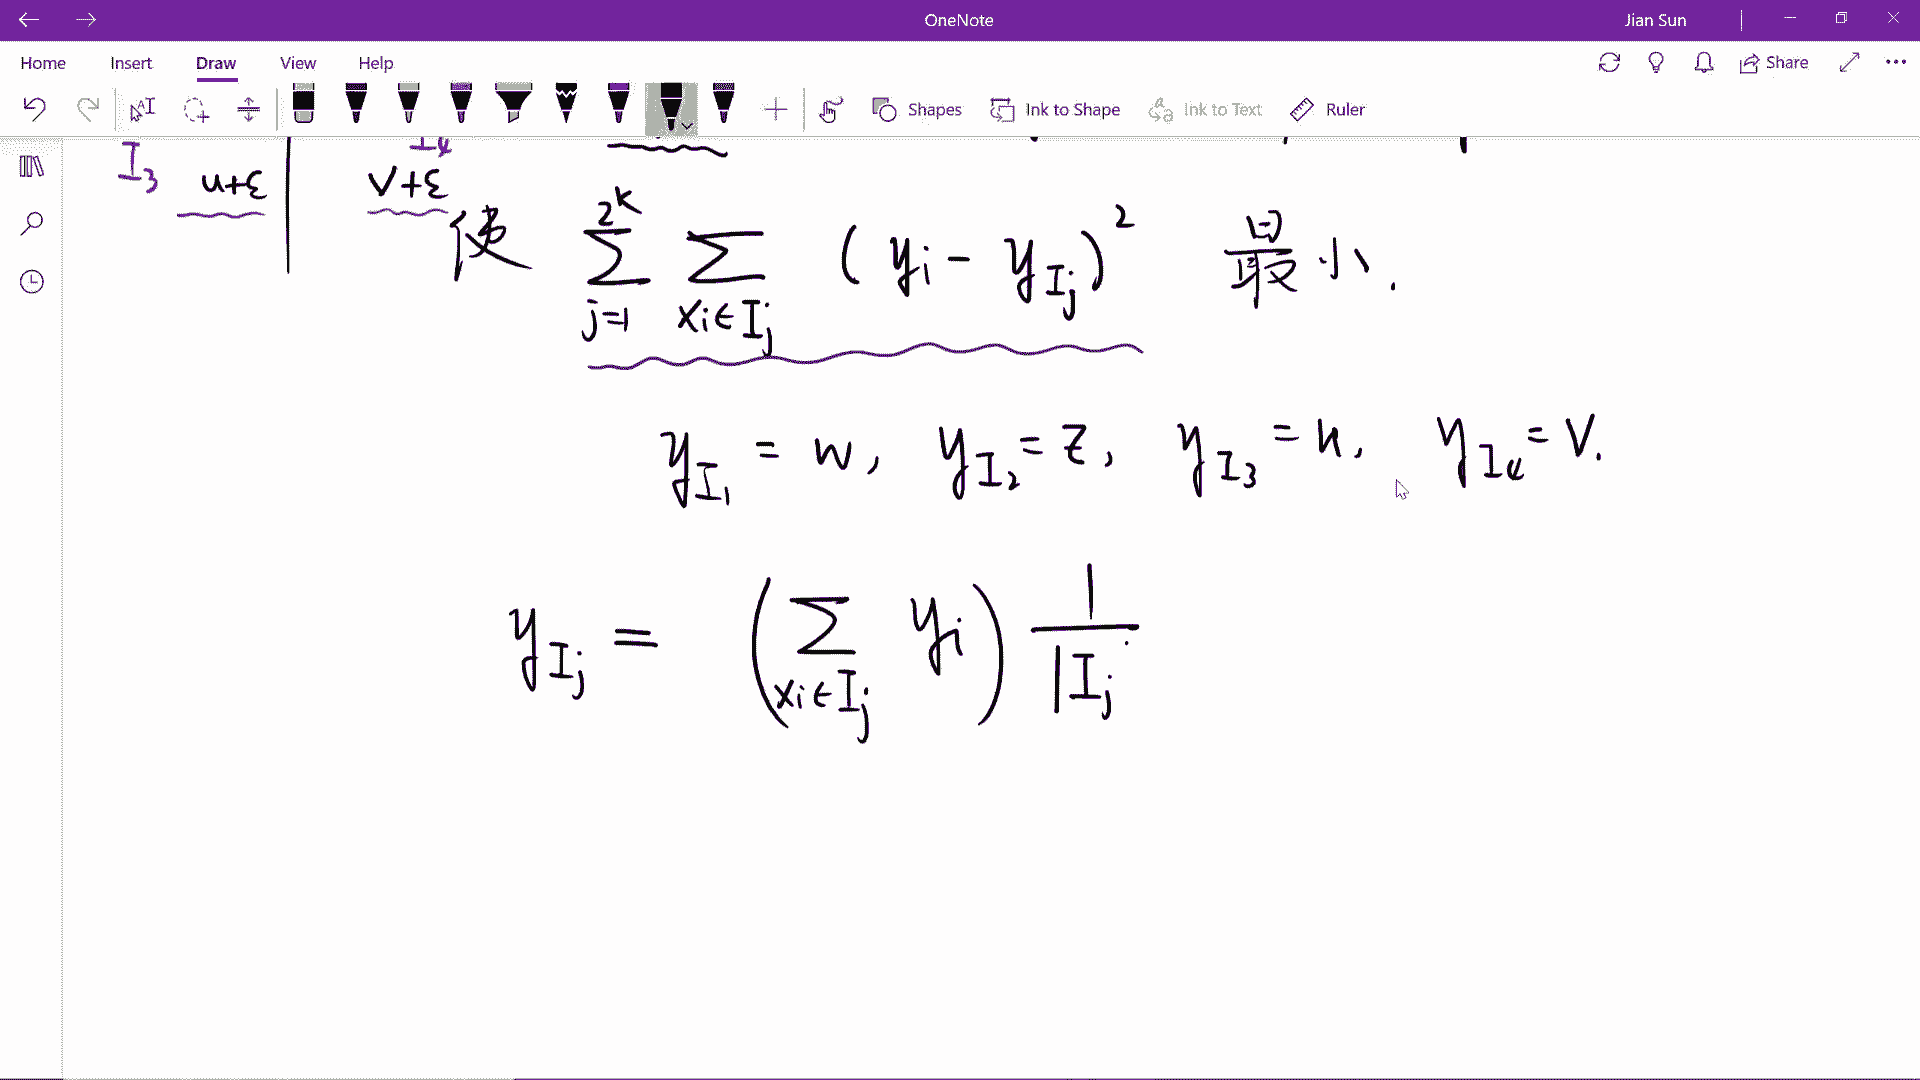 OneNote
Jian Sun
Home Insert Draw View Help
Share
Shapes Ink to Shape Ink to Text Ruler
I₃ u+ε
I₄ v+ε
使 ∑_{j=1}^{2^k} ∑_{x_i∈I_j} (y_i - y_{I_j})² 最小.
y_{I_1} = w, y_{I_2} = z, y_{I_3} = u, y_{I_4} = v.
y_{I_j} = (∑_{x_i∈I_j} y_i) 1/|I_j